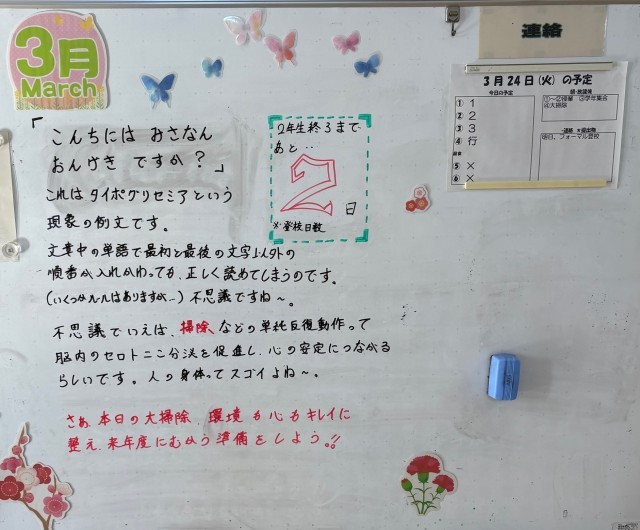 3月
March
「こんちには みさなん
おんげき ですか？」
これは タイポグリセミアという
現象の例文です。
文章中の単語で最初と最後の文字以外の
順番が入れかわっても、正しく読めてしまうのです。
(いくつかルールはありますが…) 不思議ですね～。
不思議でいえば、掃除などの単純反復動作って
脳内のセロトニン分泌を促進し、心の安定につながる
らしいです。人の身体ってスゴイよね～。
さぁ 本日の大掃除 環境も心もキレイに
整え、来年度にむかう準備をしよう!!
2年生終了まで
あと…
2
日
※登校日数
連絡
3月24日(火)の予定
今日の予定
① 1
② 2
③ 3
④ 行
⑤ ×
⑥ ×
①～②授業 ③学年集会
④大掃除
明日、フォーマル登校